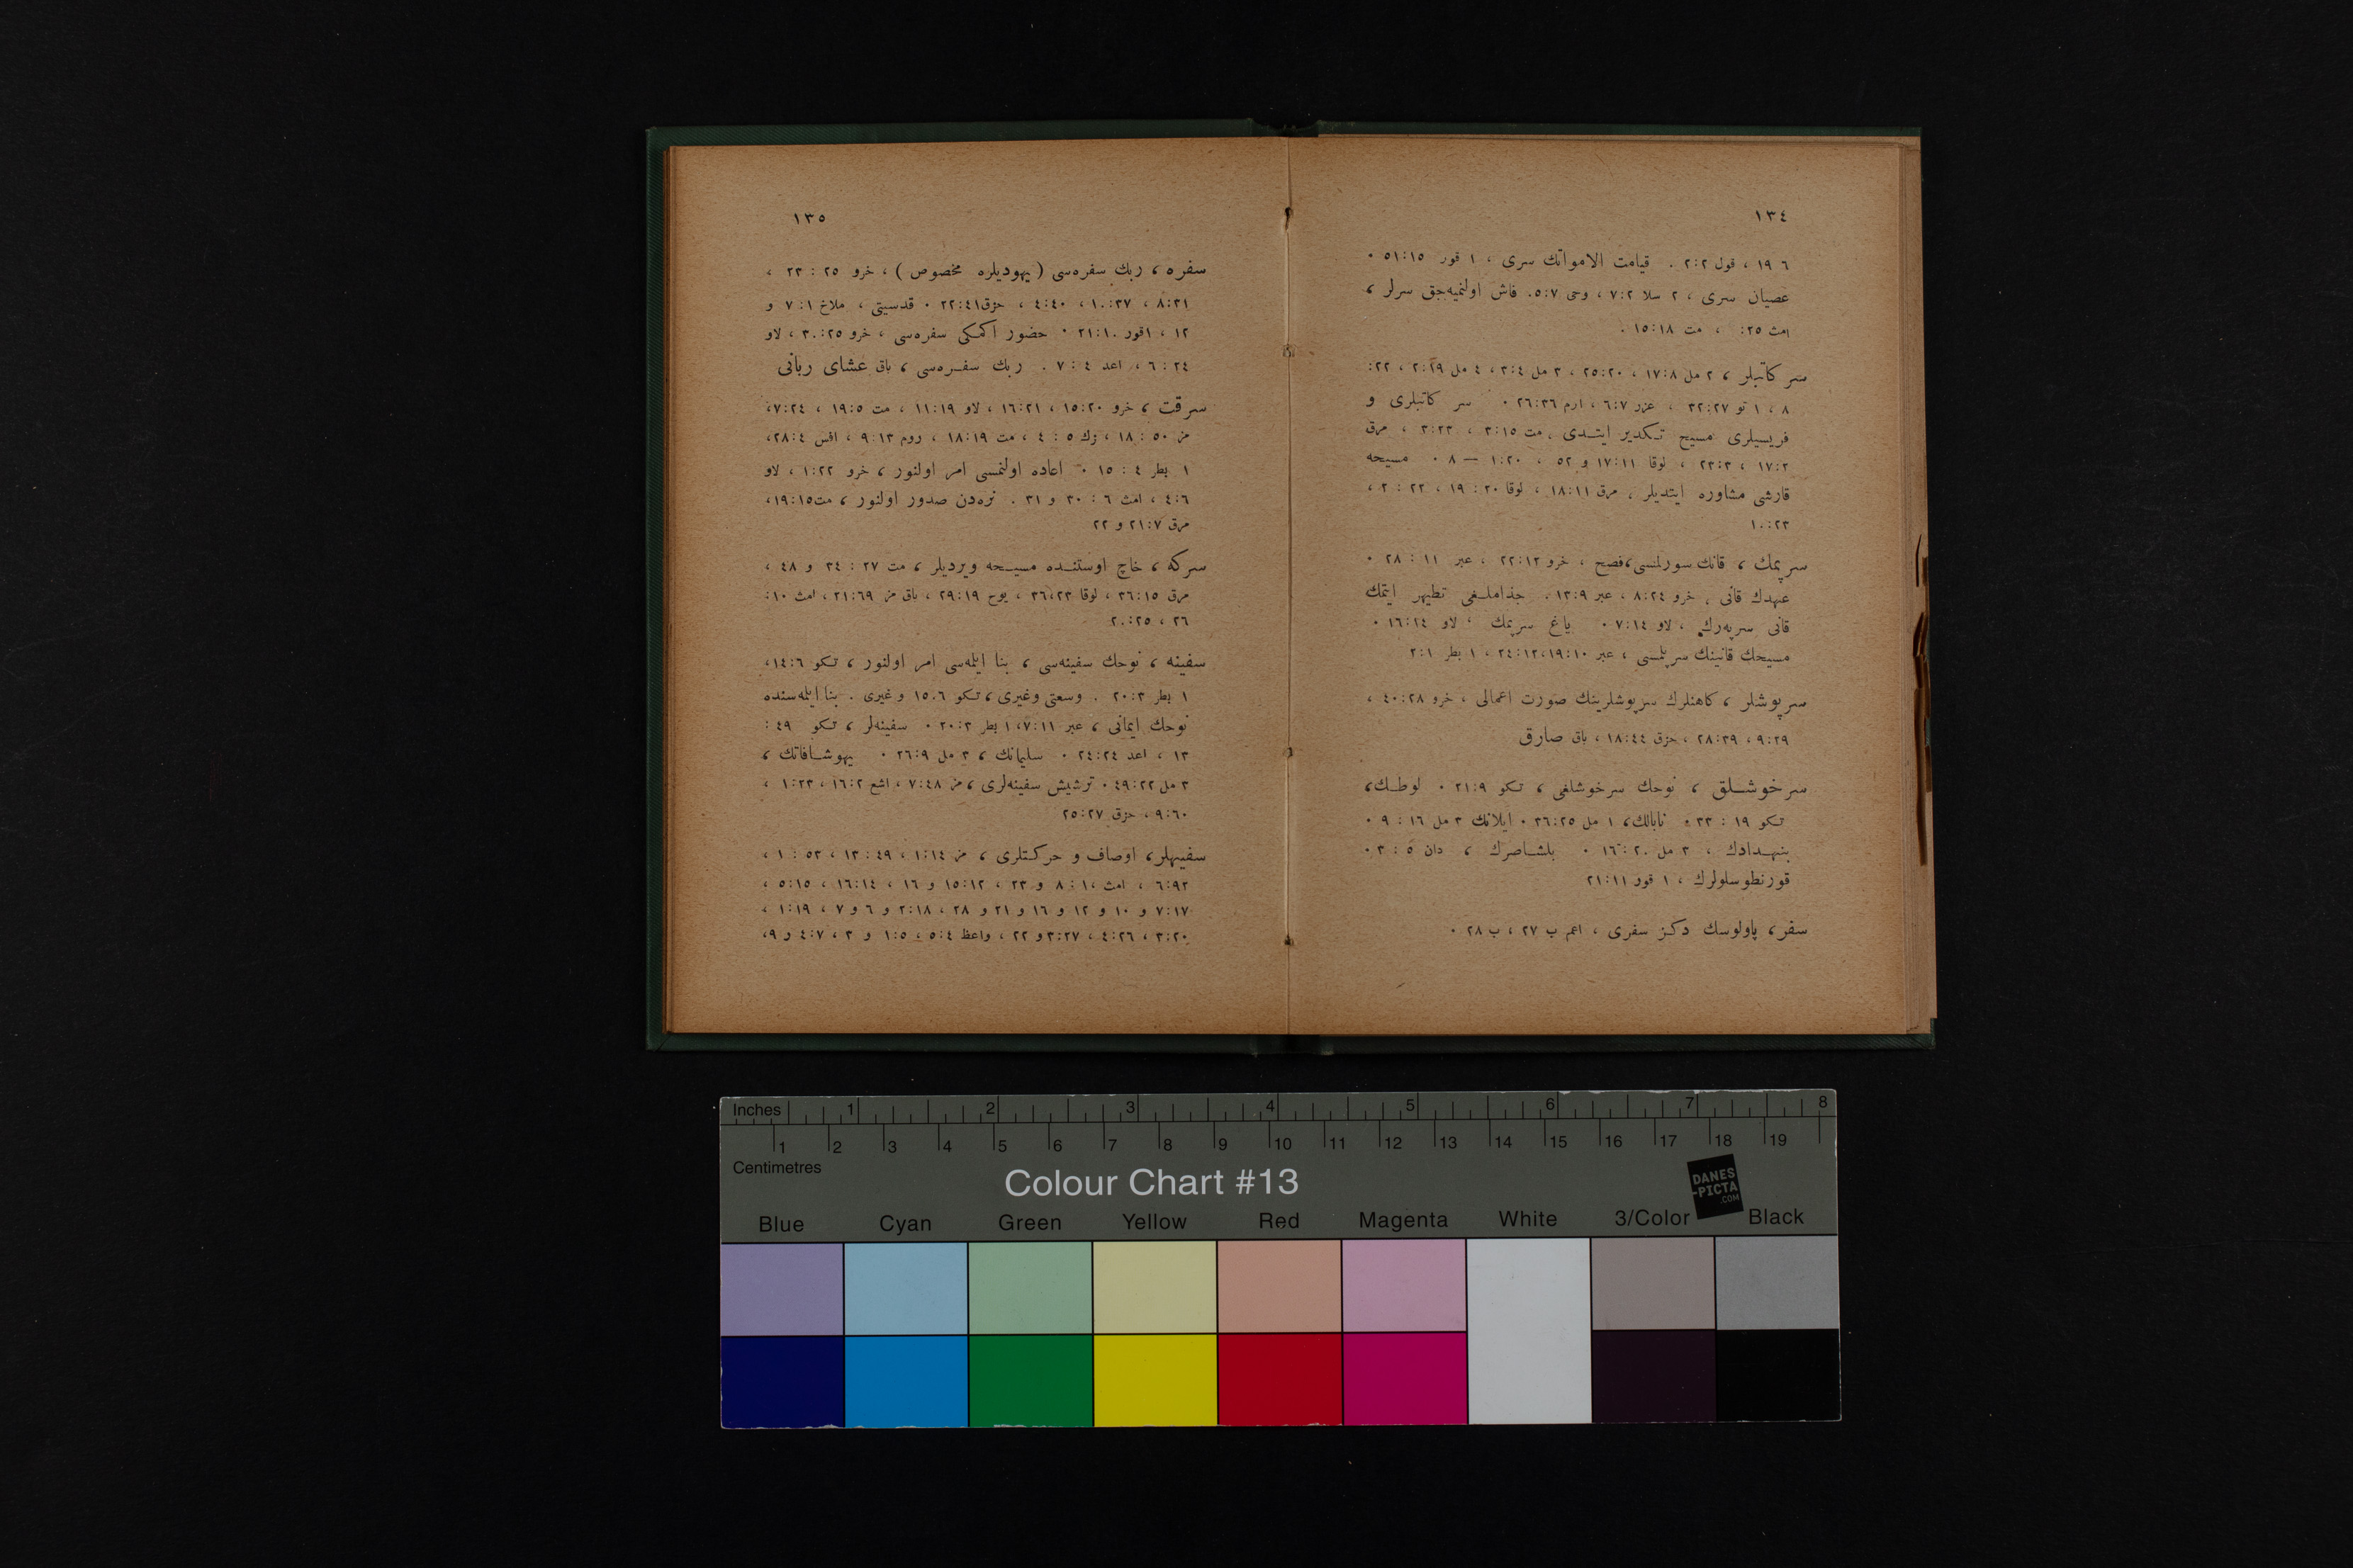 ١٣٤
٦ ١٩ ، قول ٢:٢ . قيامت الامواتك سرى ، ١ قور ٥١:١٥ ٠
عصيان سرى ، ٢ سلا ٧:٢ ، وحى ٥:٧. فاش اولنميه‌جق سرلر ،
امث ٢٥: ، مت ١٥:١٨ .
سر كاتبلر ، ٢ مل ١٧:٨ ، ٢٥:٢٠ ، ٣ مل ٣:٤ ، ٤ مل ٢:١٩ ، ٢٢:
٨ ، ١ تو ٣٢:٢٧ ، عزر ٦:٧ ، ارم ٢٦:٣٦ ٠ سر كاتبلرى و
فريسيلرى مسيح تـكدير ايتـدى ، مت ٣:١٥ ، ٣:٢٣ ، مرق
١٧:٢ ، ٢٣:٣ ، لوقا ١٧:١١ و ٥٢ ، ١:٢٠ — ٨ ٠ مسيحه
قارشى مشاوره ايتديلر ، مرق ١٨:١١ ، لوقا ٢٠ : ١٩ ، ٢٢ : ٢ ،
١٠:٢٣
سرپمك ، قانك سورلمسى، فصح ، خرو ٢٢:١٢ ، عبر ١١ : ٢٨ ٠
عهدك قانى ، خرو ٨:٢٤ ، عبر ١٣:٩ ، جذاملـغى تطهير ايتمك
قانى سرپه‌رك ، لاو ٧:١٤ ٠ ياغ سرپمك ، لاو ١٦:١٤ ٠
مسيحك قانينك سرپلمسى ، عبر ١٩:١٠،٢٤:١٢ ، ١ بطر ٢:١
سرپوشلر ، كاهنلرك سرپوشلرينك صورت اعمالى ، خرو ٤٠:٢٨ ،
٩:٢٩ ، ٢٨:٣٩ ، حزق ١٨:٤٤ ، باق صارق
سرخوشـلق ، نوحك سرخوشلغى ، تـكو ٢١:٩ ٠ لوطـك،
تـكو ١٩ : ٣٣ ٠ نابالك، ١ مل ٣٦:٢٥ ٠ ايلانك ٣ مل ١٦ : ٩ ٠
بنهـدادك ، ٣ مل ١٦:٢٠ ٠ بلشـاصرك ، دان ٥ : ٣ ٠
قورنطوسلولرك ، ١ قور ٢١:١١
سفر، پاولوسك دكـز سفرى ، اعم ب ٢٧ ، ب ٢٨ ٠
١٣٥
سفره ، ربك سفره‌سى (يهوديلره مخصوص) ، خرو ٢٥ : ٢٣ ،
٨:٣١ ، ١٠:٣٧ ، ٤:٤٠ ، حزق ٢٢:٤١ ٠ قدسيتى ، ملاخ ٧:١ و
١٢ ، ١قور ٢١:١٠ ٠ حضور اكمكى سفره‌سى ، خرو ٣٠:٢٥ ، لاو
٦:٢٤ ، اعد ٤ : ٧ . ربك سفـره‌سى ، باق عشاى ربانى
سرقت ، خرو ١٥:٢٠ ، ١٦:٢١ ، لاو ١١:١٩ ، مت ١٩:٥ ، ٧:٢٤،
مز ٥٠ : ١٨ ، زك ٥ : ٤ ، مت ١٨:١٩ ، روم ٩:١٣ ، افس ٢٨:٤،
١ بطر ٤ : ١٥ ٠ اعاده اولنمسى امر اولنور ، خرو ١:٢٢ ، لاو
٤:٦ ، امث ٦ : ٣٠ و ٣١ . نره‌دن صدور اولنور ، مت ١٩:١٥،
مرق ٢١:٧ و ٢٢
سركه ، خاچ اوستنـده مسيـحه ويرديلر ، مت ٢٧ : ٣٤ و ٤٨ ،
مرق ٣٦:١٥ ، لوقا ٣٦،٢٣ ، يوح ٢٩:١٩ ، باق مز ٢١:٦٩ ، امث ١٠:
٢٦ ، ٢٠:٢٥
سفينه ، نوحك سفينه‌سى ، بنا ايلمه‌سى امر اولنور ، تـكو ١٤:٦،
١ بطر ٢٠:٣ . وسعتى وغيرى ، تـكو ١٥،٦ و غيرى . بنا ايلمه‌سنده
نوحك ايمانى ، عبر ٧:١١، ١ بطر ٢٠:٣ ٠ سفينه‌لر ، تـكو ٤٩ :
١٣ ، اعد ٢٤:٢٤ ٠ سليمانك ، ٣ مل ٢٦:٩ ٠ يهوشـافاتك ،
٣ مل ٤٩:٢٢ ٠ ترشيش سفينه‌لرى ، مز ٧:٤٨ ، اشع ١٦:٢ ، ١:٢٣ ،
٩:٦٠ ، حزق ٢٥:٢٧
سفيهلر، اوصاف و حركـتلرى ، مز ١:١٤ ، ١٣:٤٩ ، ١:٥٣ ،
٦:٩٢ ، امث ٨:١٠ و ٢٣ ، ١٥:١٢ و ١٦ ، ١٦:١٤ ، ٥:١٥ ،
٧:١٧ و ١٠ و ١٢ و ١٦ و ٢١ و ٢٨ ، ٢:١٨ و ٦ و ٧ ، ١:١٩ ،
٣:٢٠ ، ٤:٢٦ ، ٣:٢٧ و ٢٢ ، واعظ ٥:٤ ، ١:٥ و ٣ ، ٤:٧ و ٩،
Inches 1 2 3 4 5 6 7 8
1 2 3 4 5 6 7 8 9 10 11 12 13 14 15 16 17 18 19
Centimetres
Colour Chart #13
DANES
-PICTA
.COM
Blue Cyan Green Yellow Red Magenta White 3/Color Black